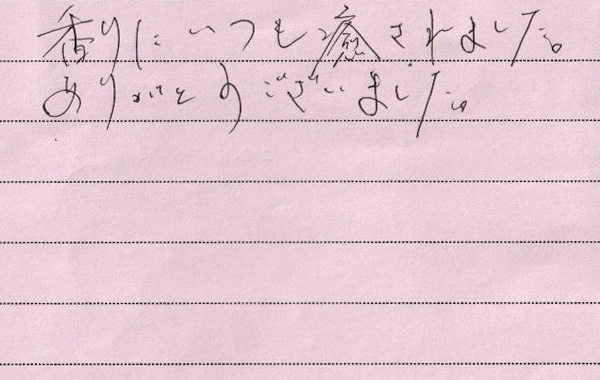 香りにいつも癒されました。
ありがとうございました。